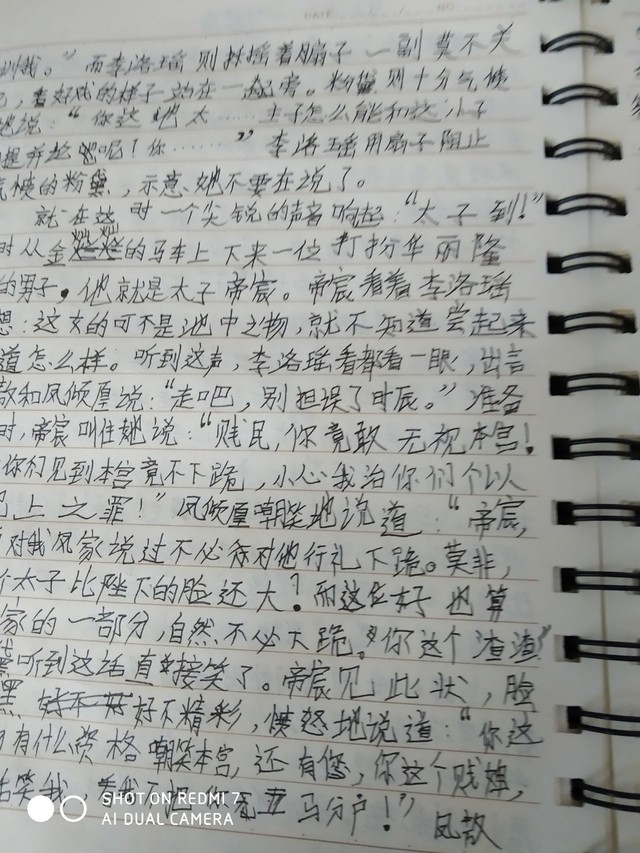 训我。”而李洛瑶则抖摇着扇子一副莫不关
己，看好戏的样子站在一起旁。粉黛则十分气愤
地说：“你这地太……主子怎么能和这小子
相提并论呢！你……”李洛瑶用扇子阻止
气愤的粉黛，示意她不要在说了。
就在这时一个尖锐的声音响起：“太子到！”
时从金灿灿的马车上下来一位打扮华丽隆
的男子。他就是太子帝宸。帝宸看着李洛瑶
想：这女的可不是池中之物，就不知道尝起来
道怎么样。听到这声，李洛瑶看都看一眼，出言
散和凤倾厘说：“走吧，别担误了时辰。”准备
时，帝宸叫住她说：“贱民，你竟敢无视本宫！
你们见到本宫竟不下跪，小心我治你们个以
犯上之罪！”凤倾厘嘲笑地说道：“帝宸，
对我凤家说过不必称对他行礼下跪。莫非，
个太子比陛下的脸还大？而这位好也算
家的一部分，自然不必下跪。你这个渣渣”
黛听到这话直接笑了。帝宸见此状，脸
黑好不精彩，愤怒地说道：“你这
有什么资格嘲笑本宫，还有您，你这个贱婢，
笑我，马分尸！”凤散
SHOT ON REDMI 7
AI DUAL CAMERA